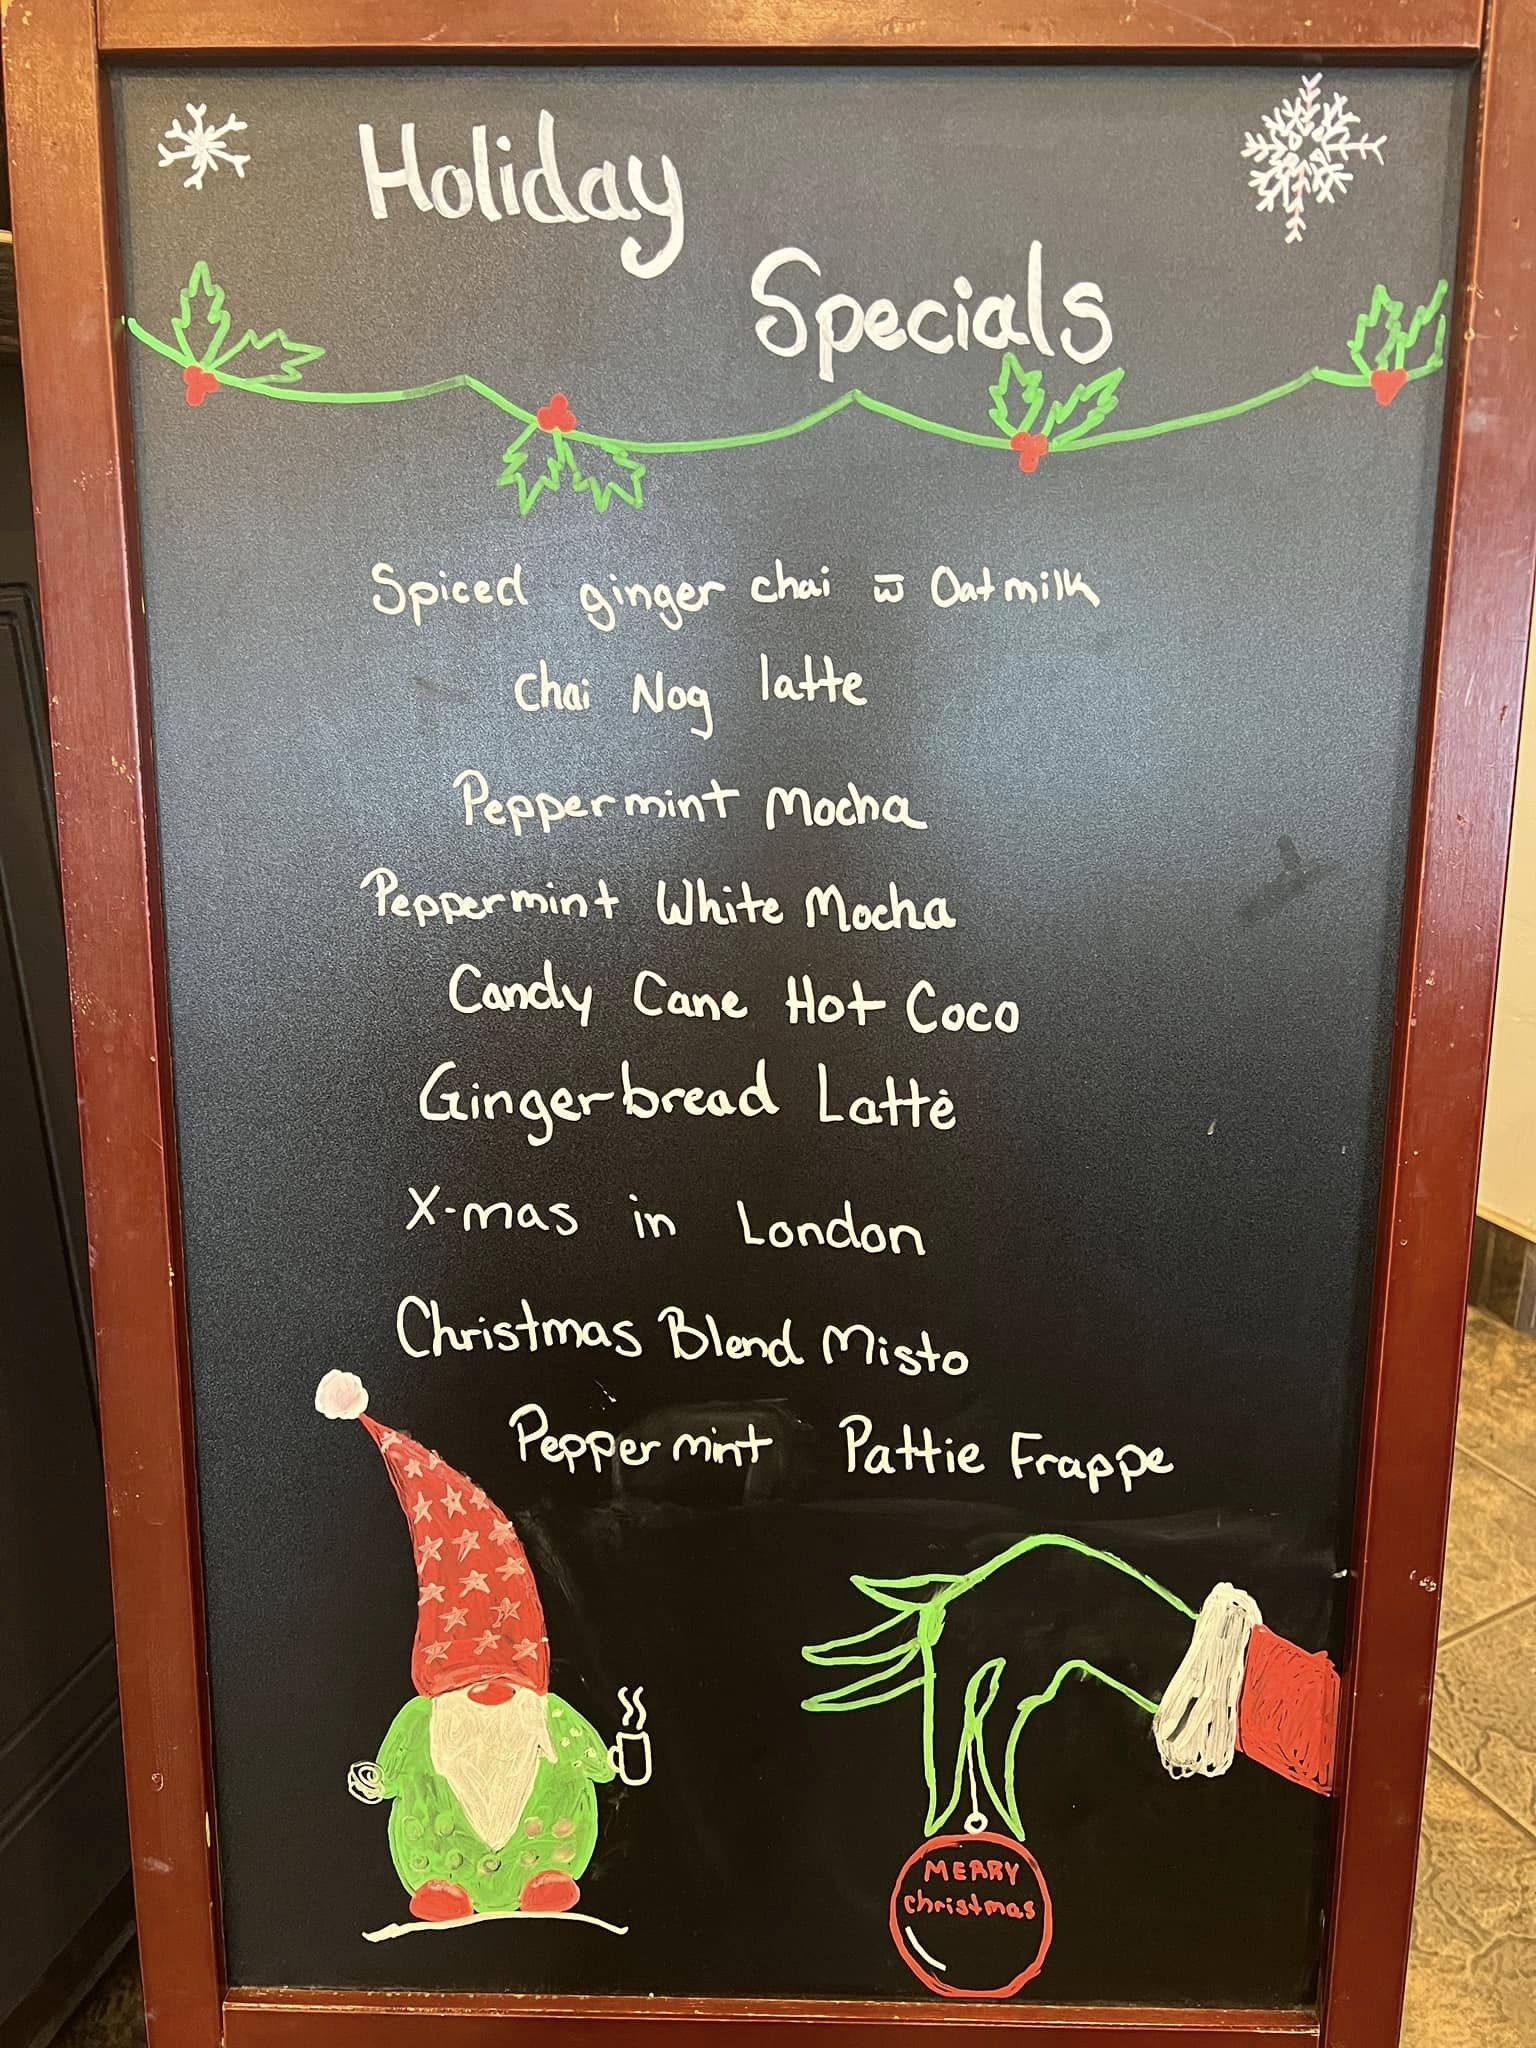 Holiday
Specials
Spiced ginger chai w̅ Oatmilk
chai Nog latte
Peppermint Mocha
Peppermint White Mocha
Candy Cane Hot Coco
Gingerbread Lattė
X-mas in London
Christmas Blend Misto
Peppermint Pattie Frappe
MERRY
christmas